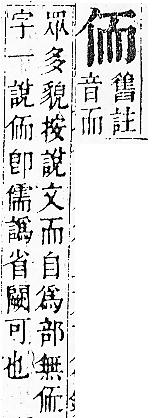 侕
舊註
音而
眾多貌按說文而自爲部無侕
字一說侕卽儒譌省闕可也